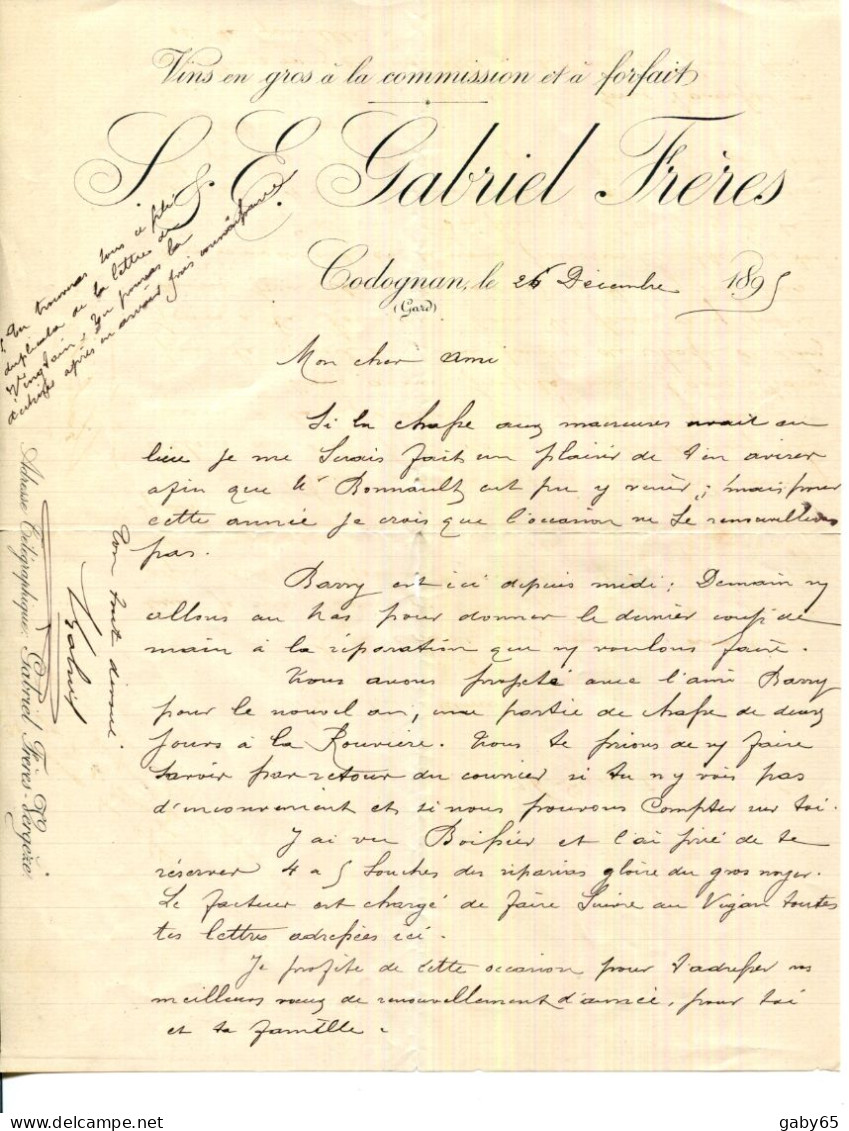 Vins en gros à la commission et à forfait
S. & E. Gabriel Frères
Codognan, le 26 Décembre 1895
(Gard)
Mon cher ami
Si la chasse aux macreuses avait eu
lieu je me serais fait un plaisir de t'en aviser
afin que Mr Bonnault eut pu y venir ; mais pour
cette année je crois que l'occasion ne se renouvellera
pas.
Barry est ici depuis midi ; Demain ny
allons au mas pour donner le dernier coup de
main à la réparation que ny voulons faire.
Nous avons projeté avec l'ami Barry
pour le nouvel an, une partie de chasse de deux
jours à la Rouvière. Nous te prions de ny faire
savoir par retour du courrier si tu n'y vois pas
d'inconvenient et si nous pouvons compter sur toi.
J'ai vu Boissier et l'ai prié de te
réserver 4 a 5 souches des riparias gloire du gros noyer.
Le facteur est chargé de faire suivre au Vigan toutes
tes lettres adressées ici.
Je profite de cette occasion pour t'adresser ns
meilleurs vœux de renouvellement d'année, pour toi
et ta famille.
Ton tout dévoué
Gabriel
Tu trouveras sous ce pli
duplicata de la lettre de
Vinglain. Tu pourras la
détruire après en avoir pris connaissance
Adresse Télégraphique: Gabriel Frères-Vergèze
gaby65